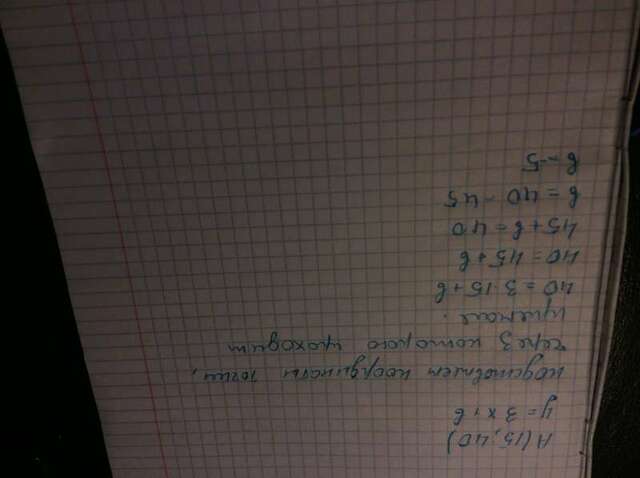 A(15;40)
y = 3x + b
подставляем координаты точки,
через которою проходит
прямая.
40 = 3·15 + b
40 = 45 + b
45 + b = 40
b = 40 - 45
b = -5